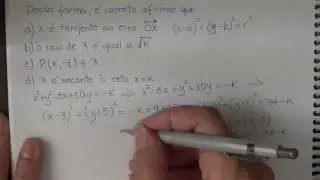 Dessa forma, é correto afirmar que
a) λ é tangente ao eixo OX (x-a)²+(y-b)²=r²
b) o raio de λ é igual a √K
c) P(K,-1) ∈ λ.
d) λ é secante à reta x=K
x²+y²-6x+10y=-K ⇒ x²-6x+y²+10y=-K ⇒
(x-3)²+(y+5)²=-K+9+